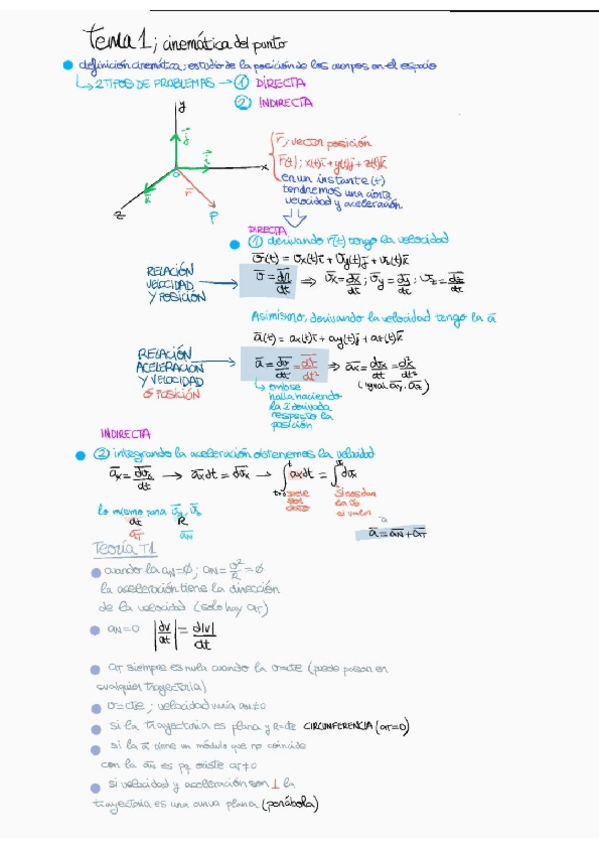 Tema 1; cinemática del punto
definición cinemática; estudio de la posición de los cuerpos en el espacio
2 TIPOS DE PROBLEMAS → ① DIRECTA
② INDIRECTA
y
j
i
x
O
k
r
z
P
r; vector posición
r(t); x(t)i + y(t)j + z(t)k
en un instante (t)
tendremos una cierta
velocidad y aceleración
DIRECTA
① derivando r(t) tengo la velocidad
v(t) = vx(t)i + vy(t)j + vz(t)k
RELACIÓN
VELOCIDAD
Y POSICIÓN
v = dr/dt ⇒ vx = dx/dt ; vy = dy/dt ; vz = dz/dt
Asimismo, derivando la velocidad tengo la a
a(t) = ax(t)i + ay(t)j + az(t)k
RELACIÓN
ACELERACIÓN
Y VELOCIDAD
O POSICIÓN
a = dv/dt = d²r/dt² ⇒ ax = dvx/dt = d²x/dt²
(igual ay, az)
halla haciendo
la 2ª derivada
respecto la
posición
INDIRECTA
② integrando la aceleración obtenemos la velocidad
ax = dvx/dt → ax dt = dvx → ∫ ax dt = ∫ dvx
lo mismo para vy, vz
dt R
aT aN
a = aN + aT
Teoría T1
cuando la aN = Ø ; aN = v²/R = Ø
la aceleración tiene la dirección
de la velocidad (solo hay aT)
aN = 0 |dv/dt| = d|v|/dt
aT siempre es nula cuando la v=cte (puede pasar en
cualquier trayectoria)
v = cte ; velocidad varía aN ≠ 0
si la trayectoria es plana y R=cte CIRCUNFERENCIA (aT=0)
si la a tiene un módulo que no coincide
con la aN es pq existe aT ≠ 0
si velocidad y aceleración son ⊥ la
trayectoria es una curva plana (parábola)